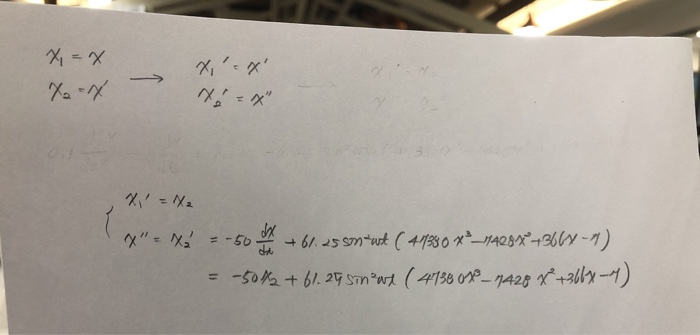 x₁ = x → x₁' = x'
x₂ = x' x₂' = x''
{ x₁' = x₂
x'' = x₂' = -50 dx/dt + 61.25 sin²wt (47380x³ - 7428x² + 366x - 7)
= -50x₂ + 61.25 sin²wt (47380x³ - 7428x² + 366x - 7)